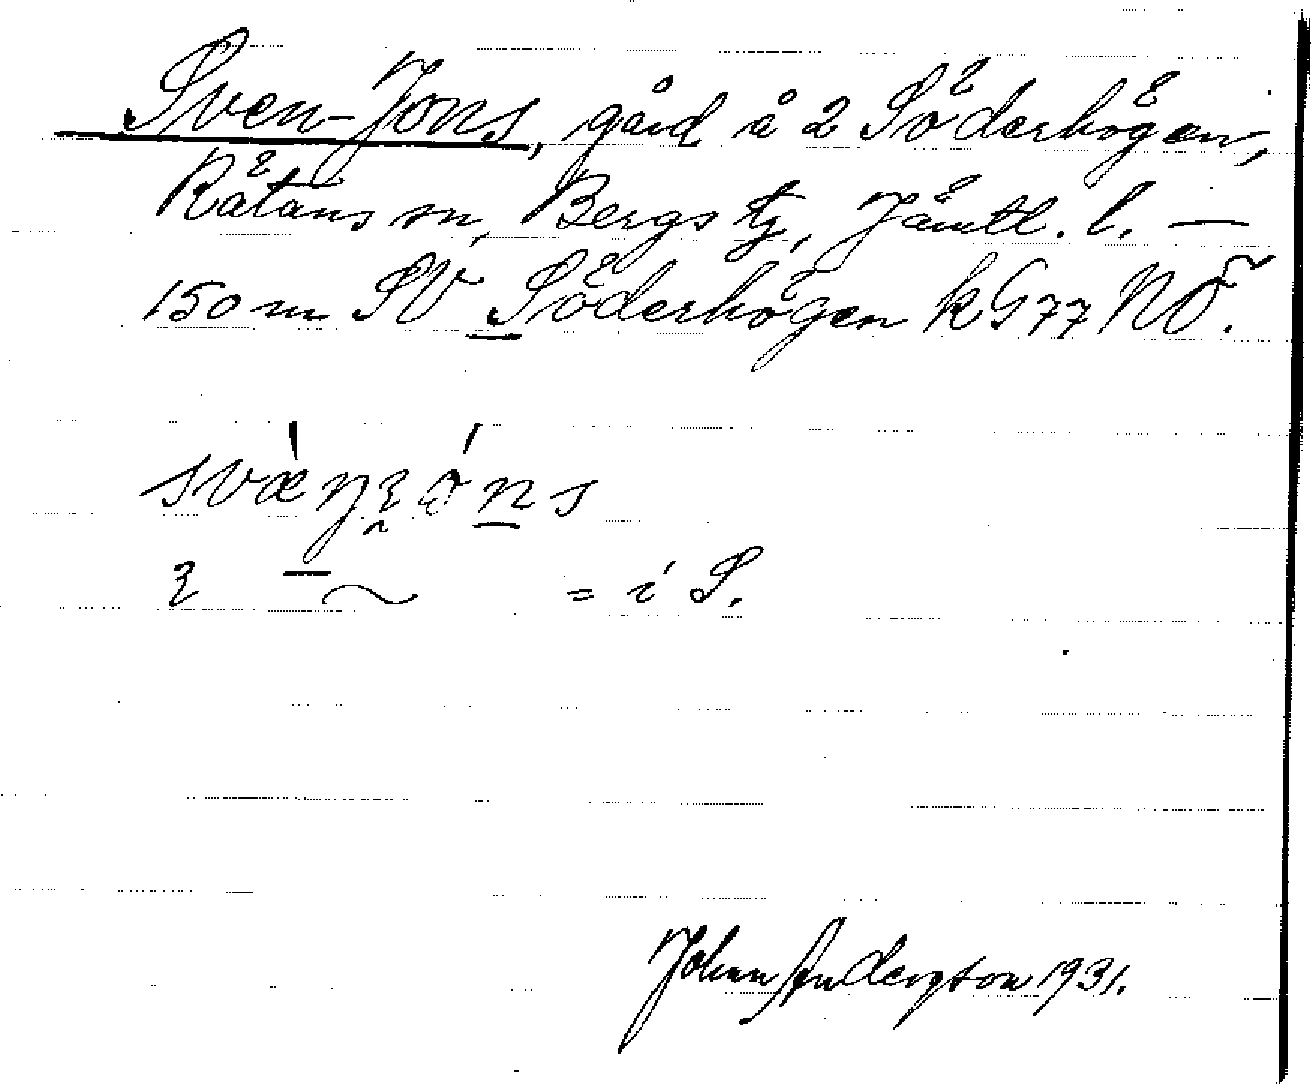 Sven-Jons, gård å 2 Söderhögen,
Rätans sn, Bergs tg, Jämtl. l. —
150 m SV Söderhögen k G77 NÖ.
= i S.
Johan Andersson 1931.